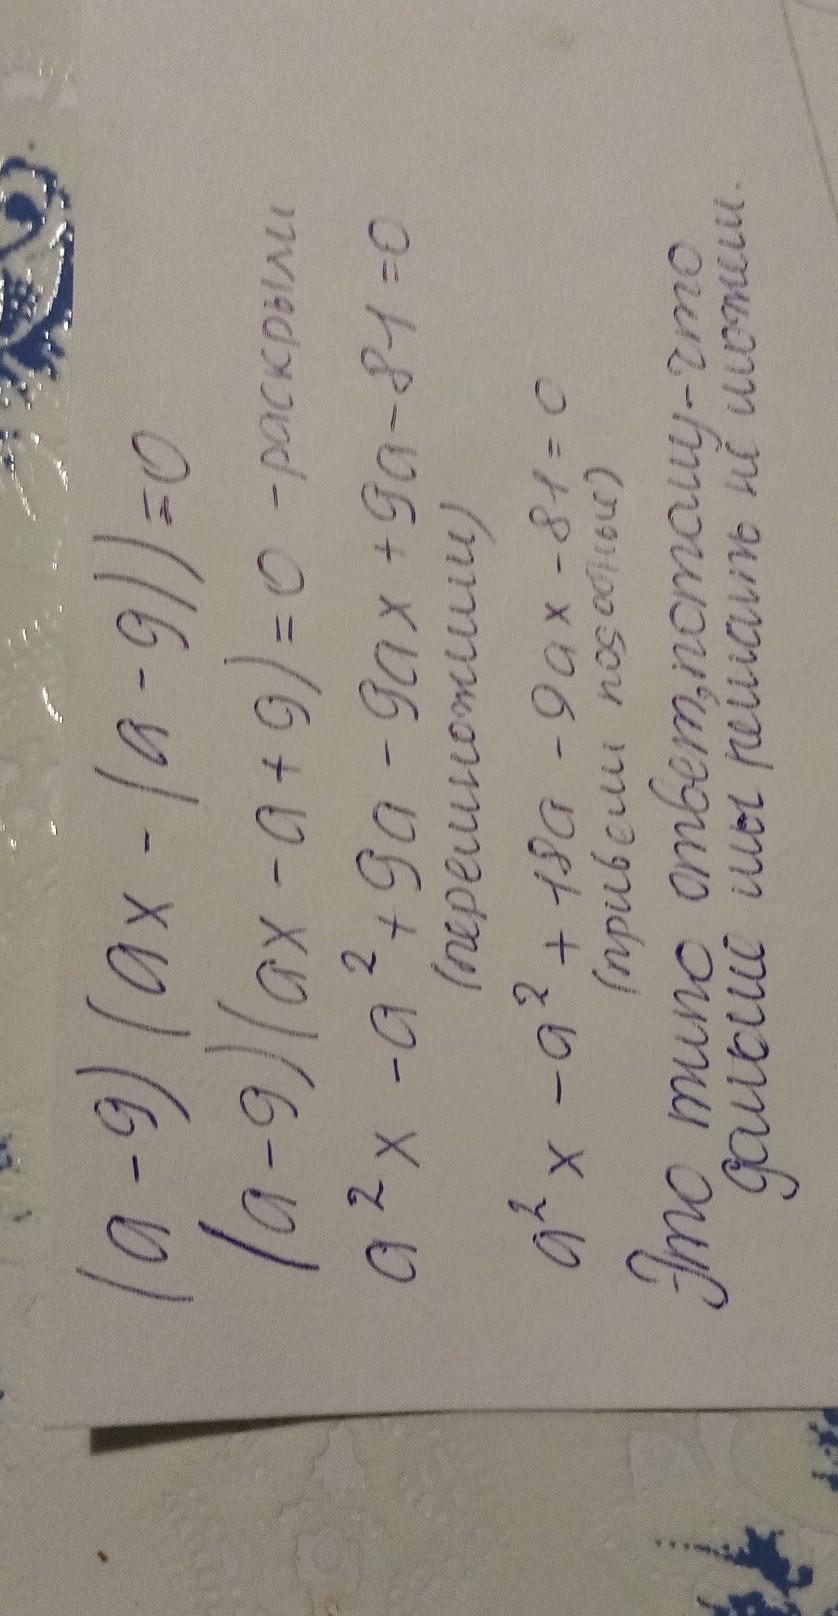 (a-9)(ax-(a-9))=0
(a-9)(ax-a+9)=0 -раскрыли
a²x -a²+9a-9ax+9a-81=0
(перемножили)
a²x -a²+18a-9ax-81=0
(привели подобные)
Это типо ответ,потому-что
дальше мы решать не можем.